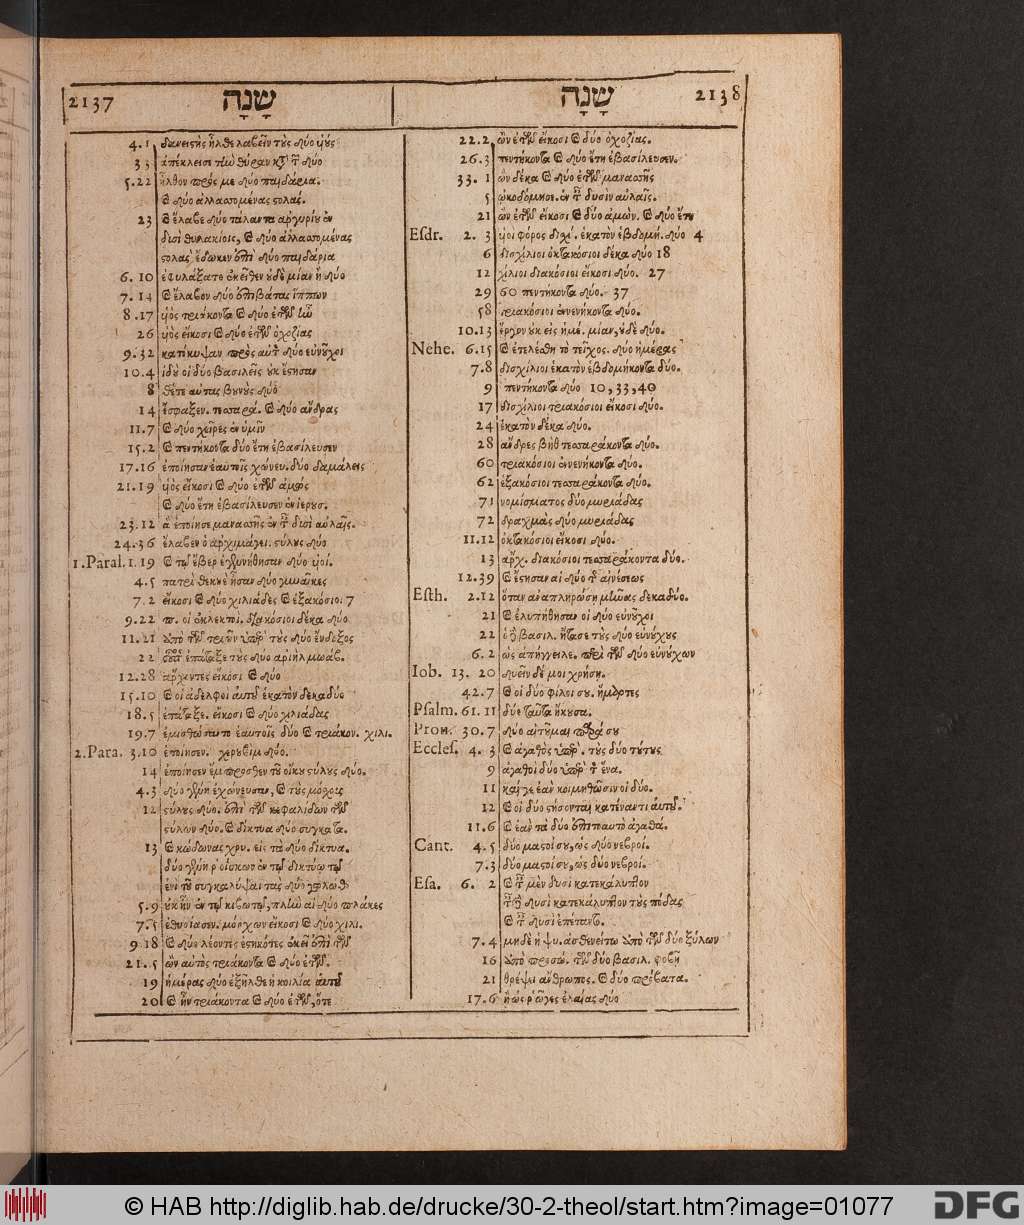 2137
שָׁנָה
שָׁנָה
2138
4. 1 δανειςὴς ἦλθε λαβεῖν τοὺς δύο υἱούς
33 ἀπέκλεισε τὴν θύραν κτ τ δύο
5.22 ἦλθον πρός με δύο παιδάρια.
καὶ δύο ἀλλασσομένας ςολάς.
23 καὶ ἔλαβε δύο τάλαντα ἀργυρίου ἐν
δυσὶ θυλακίοις, καὶ δύο ἀλλασσομένας
ςολὰς ἔδωκεν ἐπὶ δύο παιδάρια
6. 10 ἐφυλάξατο ἐκεῖθεν οὐδὲ μίαν ἢ δύο
7. 14 καὶ ἔλαβον δύο ἐπιβάτας ἵππων
8. 17 υἱὸς τριάκοντα καὶ δύο ἐτῶν ἦν
26 υἱὸς εἴκοσι καὶ δύο ἐτῶν ὀχοζίας
9. 32 κατέκυψαν πρὸς αὐτ δύο εὐνοῦχοι
10.4 ἰδοὺ οἱ δύο βασιλεῖς οὐκ ἔςησαν
8 θέτε αὐτὰς βουνοὺς δύο
14 ἔσφαξεν. τεσσαρά. καὶ δύο ἄνδρας
11.7 καὶ δύο χεῖρες ἐν ὑμῖν
15.2 καὶ πεντήκοντα δύο ἔτη ἐβασίλευσεν
17.16 ἐποίησαν ἑαυτοῖς χώνευ. δύο δαμάλεις
21.19 υἱὸς εἴκοσι καὶ δύο ἐτῶν ἀμὼς
καὶ δύο ἔτη ἐβασίλευσεν ἐν ἱερουσ.
23.12 ἃ ἐποίησε μανασσῆς ἐν τ δυσὶ αὐλαῖς.
24.36 ἔλαβεν ὁ ἀρχιμάγει. ςύλους δύο
1.Paral. 1. 19 καὶ τῷ ἔβερ ἐγεννήθησαν δύο υἱοί.
4. 5 πατρὶ θεκουὲ ἦσαν δύο γυναῖκες
7. 2 εἴκοσι καὶ δύο χιλιάδες καὶ ἑξακόσιοι 7
9.22 π. οἱ ἐκλεκτοὶ. διακόσιοι δέκα δύο
11. 21 ἀπὸ τῶν τριῶν ὑπὲρ τοὺς δύο ἔνδοξος
22 οὗτος ἐπάταξε τοὺς δύο ἀριὴλ μωάβ.
12.28 ἄρχοντες εἴκοσι καὶ δύο
15.10 καὶ οἱ ἀδελφοὶ αὐτοῦ ἑκατὸν δεκαδύο
18.5 ἐπάταξε. εἴκοσι καὶ δύο χιλιάδας
19.7 ἐμισθώσαντο ἑαυτοῖς δύο καὶ τριάκον. χιλι.
2.Para. 3.10 ἐποίησεν. χερουβὶμ δύο.
14 ἐποίησεν ἔμπροσθεν τοῦ οἴκου ςύλους δύο.
4.3 δύο γένη ἐχώνευσαν, καὶ τοὺς μόχους
12 ςύλους δύο. ἐπὶ τῶν κεφαλίδων τῶν
ςύλων δύο. καὶ δίκτυα δύο συγκαλ.
13 καὶ κώδωνας χρυ. εἰς τὰ δύο δίκτυα.
δύο γένη ῥοΐσκων ἐν τῷ δικτύῳ τῷ
ἑνὶ τοῦ συγκαλύψαι τὰς δύο γωλωθ
5.9 οὐκ ἦν ἐν τῷ κιβωτῷ, πλὴν αἱ δύο πλάκες
7.5 ἐθυσίασεν. μόσχων εἴκοσι καὶ δύο χιλι.
9. 18 καὶ δύο λέοντες ἑςηκότες ἐκεῖ ἐπὶ τῶν
21.5 ὢν αὐτὸς τριάκοντα καὶ δύο ἐτῶν.
19 ἡμέρας δύο ἐξῆλθε ἡ κοιλία αὐτοῦ
20 καὶ ἦν τριάκοντα καὶ δύο ἐτῶν, ὅτε
22. 2 ὢν ἐτῶν εἴκοσι καὶ δύο ὀχοζίας.
26.3 πεντήκοντα καὶ δύο ἔτη ἐβασίλευσεν.
33. 1 ὢν δέκα καὶ δύο ἐτῶν μανασσῆς
5 ᾠκοδόμησε. ἐν τ δυσὶν αὐλαῖς.
21 ὢν ἐτῶν εἴκοσι καὶ δύο ἀμών. καὶ δύο ἔτη
Esdr. 2. 3 υἱοὶ φόρος διχί. ἑκατὸν ἑβδομή. δύο 4
6 δισχίλιοι ὀκτακόσιοι δέκα δύο 18
12 χίλιοι διακόσιοι εἴκοσι δύο. 27
29 60 πεντήκοντα δύο. 37
58 τριακόσιοι ἐννενήκοντα δύο.
10.13 ἔργον οὐκ εἰς ἡμέ. μίαν, οὐδὲ δύο.
Nehe. 6.15 καὶ ἐτελέσθη τὸ τεῖχος. δύο ἡμέρας
7.8 δισχίλιοι ἑκατὸν ἑβδομήκοντα δύο.
9 πεντήκοντα δύο 10, 33, 40
17 δισχίλιοι τριακόσιοι εἴκοσι δύο.
24 ἑκατὸν δέκα δύο.
28 ἄνδρες βὴθ τεσσαράκοντα δύο.
60 τριακόσιοι ἐννενήκοντα δύο.
62 ἑξακόσιοι τεσσαράκοντα δύο.
71 νομίσματος δύο μυριάδας
72 δραχμὰς δύο μυριάδας
11.12 ὀκτακόσιοι εἴκοσι δύο.
13 ἄρχ. διακόσιοι τεσσαράκοντα δύο.
12.39 καὶ ἔςησαν αἱ δύο τ αἰνέσεως
Esth. 2.12 ὅταν ἀναπληρώσῃ μῆνας δεκαδύο.
21 καὶ ἐλυπήθησαν οἱ δύο εὐνοῦχοι
22 ὁ δὲ βασιλ. ἤτασε τοὺς δύο εὐνούχους
6. 2 ὡς ἀπήγγειλε. περὶ τῶν δύο εὐνούχων
Iob. 13. 20 δυεῖν δέ μοι χρήσῃ.
42.7 καὶ οἱ δύο φίλοι σου. ἥμαρτες
Psalm. 61. 11 δύο ταῦτα ἤκουσα.
Prou. 30. 7 δύο αἰτοῦμαι παρά σου
Eccles. 4. 3 καὶ ἀγαθὸς ὑπὲρ. τοὺς δύο τούτους
9 ἀγαθοὶ δύο ὑπὲρ τ ἕνα.
11 καί γε ἐὰν κοιμηθῶσιν οἱ δύο.
12 καὶ οἱ δύο ςήσονται κατέναντι αὐτοῦ.
11.6 καὶ ἐὰν τὰ δύο ἐπιτοαυτὸ ἀγαθά.
Cant. 4. 5 δύο μαςοί σου, ὡς δύο νεβροί.
7.3 δύο μαςοί σου, ὡς δύο νεβροί.
Esa. 6. 2 καὶ τ μὲν δυσὶ κατεκάλυπτον
τ δὲ δυσὶ κατεκάλυπτον τοὺς πόδας
καὶ τ δυσὶ ἐπέταντ.
7. 4 μηδὲ ἡ ψυ. ἀσθενείτω ἀπὸ τῶν δύο ξύλων
16 ἀπὸ προσώ. τῶν δύο βασιλ. φοβῇ
21 θρέψει ἄνθρωπος. καὶ δύο πρόβατα.
17.6 ἢ ὡς ῥῶγες ἐλαίας δύο
© HAB http://diglib.hab.de/drucke/30-2-theol/start.htm?image=01077
DFG